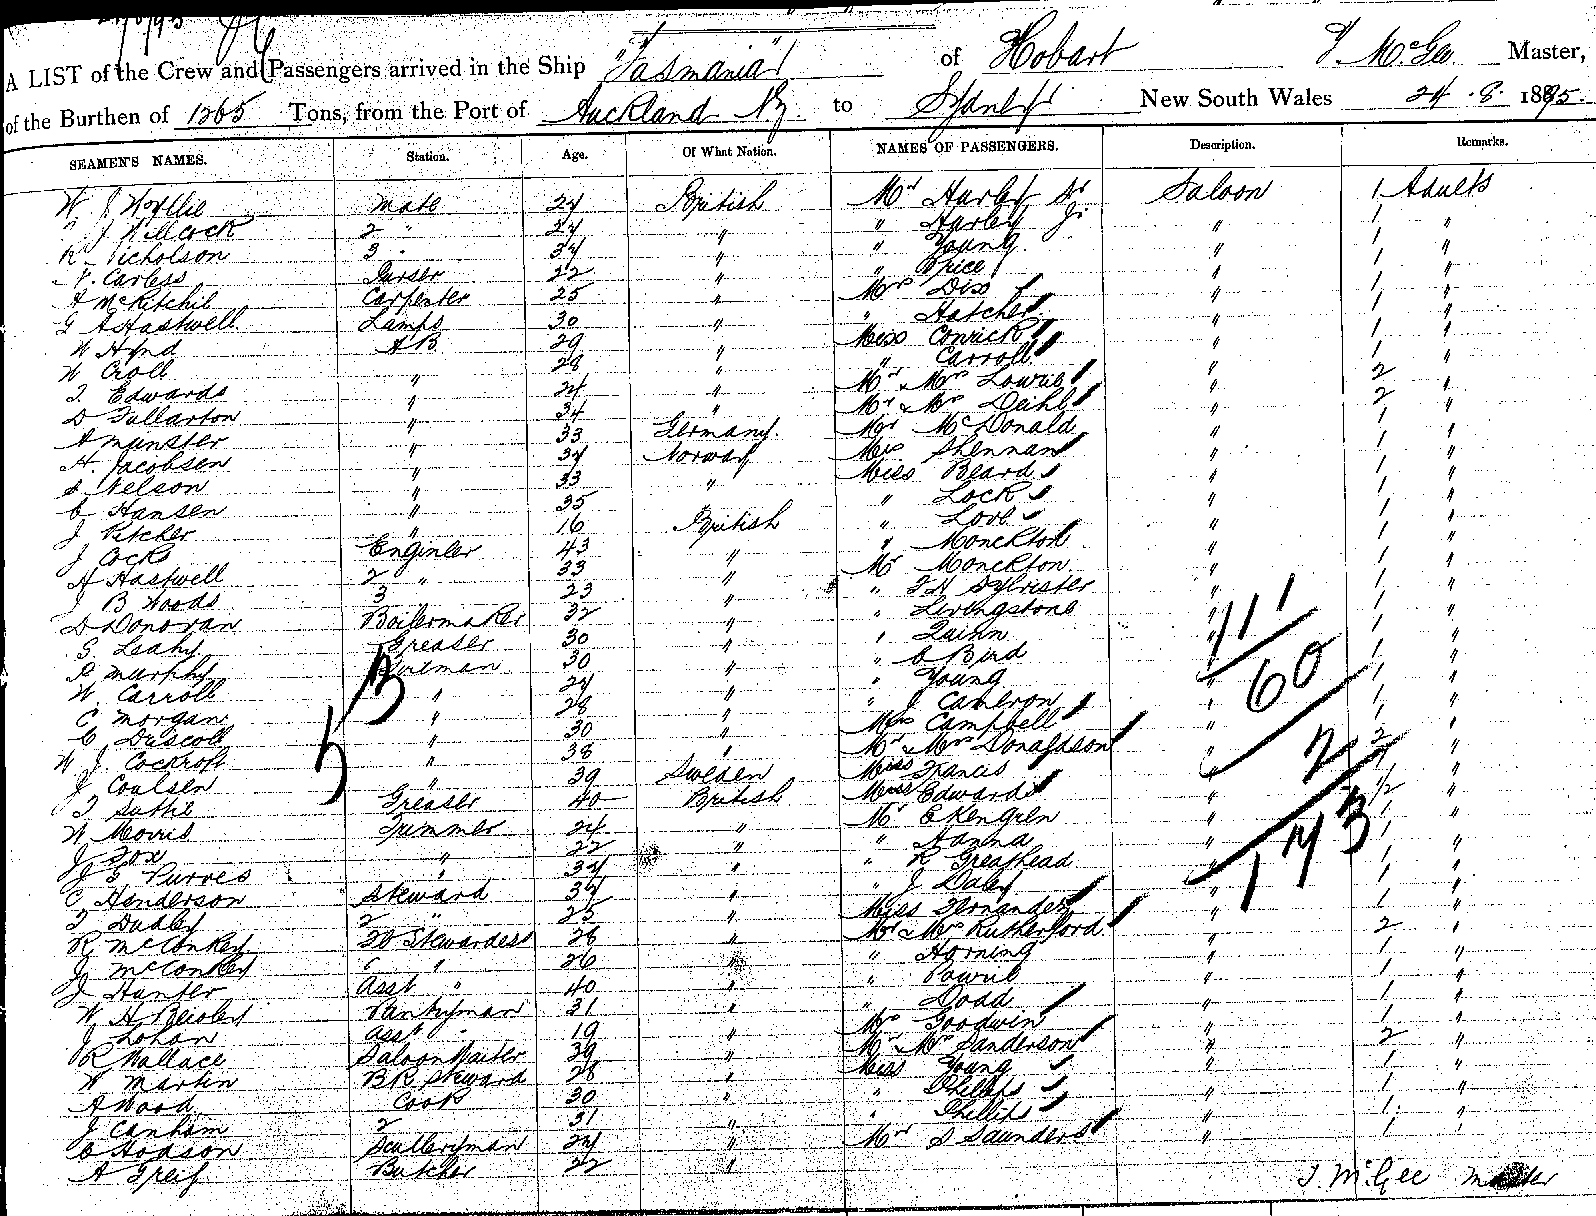 A LIST of the Crew and Passengers arrived in the Ship "Tasmania" of Hobart T McGee Master,
of the Burthen of 1265 Tons, from the Port of Auckland NZ to Sydney New South Wales 24.8.1895.
SEAMEN'S NAMES. Station. Age. Of What Nation. NAMES OF PASSENGERS. Description. Remarks.
W J Wyllie Mate 24 British Mr Hurley Sr Saloon 1 Adults
J Willcock 2 " " " Hurley Jr " 1 "
R Nicholson 3 " 34 " " Young " 1 "
Carless Purser 22 " " Price " 1 "
A McKitchil Carpenter 25 " Mrs Dix " 1 "
G A Hastwell Lamps 30 " " Hatcher " 1 "
W Hynd A B 29 " Miss Conrick " 1 "
W Croll " 28 " " Carroll " 1 "
T Edwards " 24 " Mr & Mrs Lowrie " 2 "
D Fullarton " 34 " Mr & Mrs Deihl " 2 "
A Munster " 33 Germany Mr McDonald " 1 "
H. Jacobsen " 34 Norway Shennan " 1 "
Nelson " 33 " Miss Beard " 1 "
C Hansen " 35 " Lock " 1 "
J Pitcher " 16 British " " 1 "
J Cock Engineer 43 " " Monckton " 1 "
A Hastwell 2 " 33 " Mr Monckton " 1 "
J B Woods 3 23 " " Sylvester " 1 "
D Donovan Boilermaker 32 " " Livingstone " 1 "
G. Leahy Greaser 30 " " Quinn " 1 "
P Murphy Fireman 30 " " C Bird " 1 "
W. Carroll " 24 " " Young " 1 "
C Morgan " 28 " " J Cameron " 1 "
C Driscoll " 30 " Mrs Campbell " 1 "
W J. Cockroft " 38 " Mr & Mrs Donaldson " 2 "
J Coulsen " 39 Sweden Miss Francis "
T Suthil Greaser 40 British Miss Edwards " 1/2 "
W Morris Trimmer 24 " Mr Ekengren " 1 "
J Fox " 22 " " Hanna " 1 "
Purves " 34 " " R Greathead " 1 "
C Henderson Steward 34 " " J Daley " 1 "
T Dudley 2 " 25 " Miss Fernandez " 1 "
R McConkey Stewardess 28 " Mr & Mrs Rutherford " 2 "
J McConkey " 26 " " Horning " 1 "
J Hunter Asst " 40 " " " 1 "
W H Pantryman 31 " " Dodd " 1 "
J Lohan Asst 19 " Mrs Goodwin " 1 "
R Wallace Saloon Waiter 39 " Mr & Mrs Sanderson " 2 "
W Martin B R Steward 28 " Miss Young " 1 "
A Wood Cook 30 " " Phillips " 1 "
J Canham 2 31 " " Phillips " 1 "
C Hodson Sculleryman 24 " Mr S Saunders " 1 "
A Greig Butcher 22 "
11 1
60
2
1
T. McGee Master